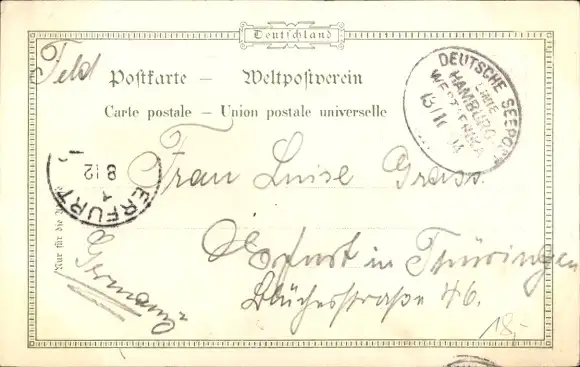 Deutschland
Feld
Postkarte — Weltpostverein
Carte postale — Union postale universelle
DEUTSCHE SEEPOST
LINIE
HAMBURG
WESTAFRIKA
13/11 04
ERFURT
1
8 12
Frau Luise Grass.
Erfurt in Thüringen
Blücherstraße 46.
Nur für die
Germany
18,-